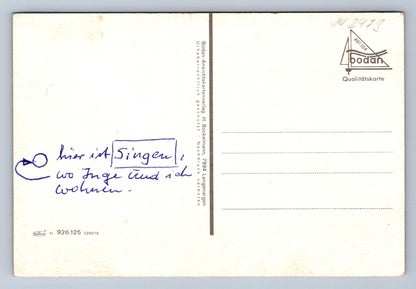 hier ist Singen,
wo Inge und ich
wohnen.
926.125
Bodan-Ansichtskartenverlag H. Bockelmann, 7994 Langenargen
Urheberrechtlich geschützt Nachdruck verboten
bodan
Qualitätskarte